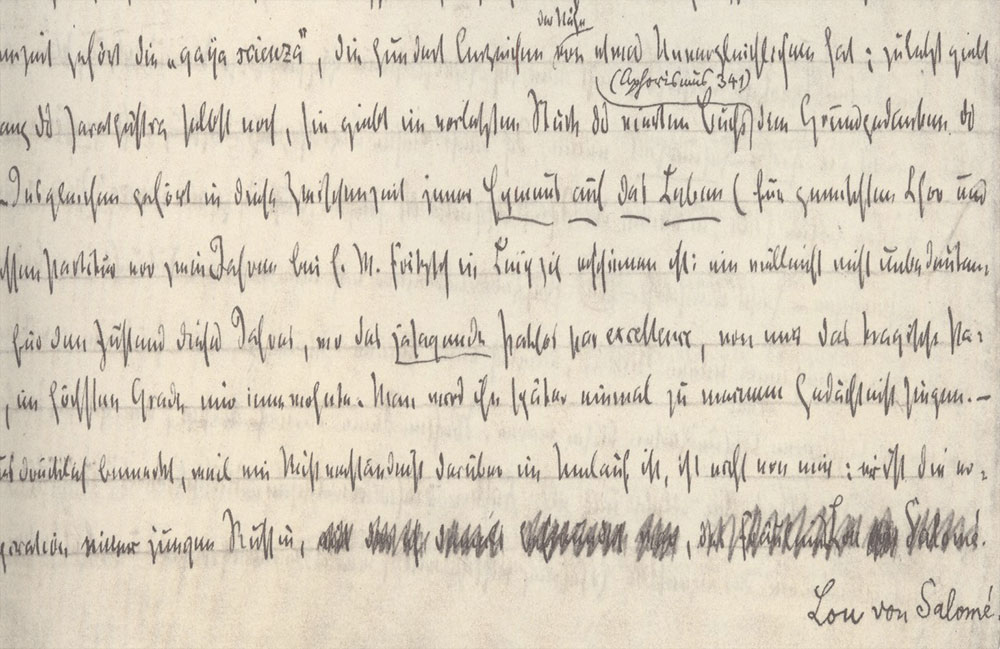 der Nähe
enzeit gehört die „gaya scienza“, die hundert Anzeichen von etwas Unvergleichlichem hat; zuletzt giebt
(Aphorismus 341)
ang des Zarathustra selbst noch, sie giebt im vorletzten Stück des vierten Buchs den Grundgedanken des
– Insgleichen gehört in diese Zwischenzeit jener Hymnus auf das Leben (für gemischten Chor und
ssen Partitur vor zwei Jahren bei E. W. Fritzsch in Leipzig erschienen ist: ein vielleicht nicht unbedeuten-
für den Zustand dieses Jahres, wo das jasagende Pathos par excellence, von mir das tragische Pa-
, im höchsten Grade mir innewohnte. Man wird ihn später einmal zu meinem Gedächtniß singen. –
ausdrücklich bemerkt, weil ein Mißverständniß darüber im Umlauf ist, ist nicht von mir: er ist die er-
piration einer jungen Russin, Salomé.
Lou von Salomé.